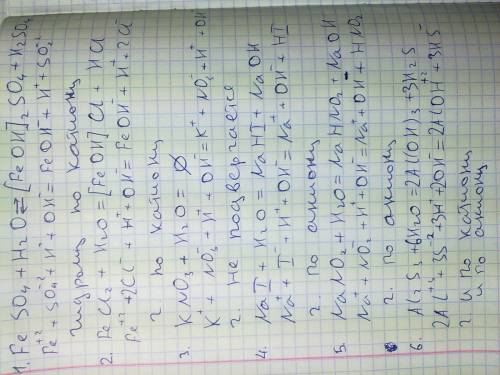 1. FeSO4 + H2O ⇄ [FeOH]2SO4 + H2SO4
Fe⁺² + SO4⁻² + H⁺ + OH⁻ = FeOH⁻ + H⁺ + SO4⁻²
гидролиз по катиону
2. FeCl2 + H2O = [FeOH]Cl + HCl
Fe⁺² + 2Cl⁻ + H⁺ + OH⁻ = FeOH + H⁺ + 2Cl⁻
г по катиону
3. KNO3 + H2O = ∅
K⁺ + NO3⁻ + H⁺ + OH⁻ = K⁺ + NO3⁻ + H⁺ + OH⁻
г. не подвергается
4. NaI + H2O = NaHI + NaOH
Na⁺ + I⁻ + H⁺ + OH⁻ = Na⁺ + OH⁻ + HI
г. по аниону
5. NaNO2 + H2O = NaHNO2 + NaOH
Na⁺ + NO2 + H⁺ + OH⁻ = Na + OH + HNO2
г. по аниону
6. Al2S3 + 6H2O = 2Al(OH)3 + 3H2S
2Al⁺³ + 3S⁻² + 3H⁺ + 2OH⁻ = 2AlOH⁺² + 3HS⁻
г и по катиону
и по аниону